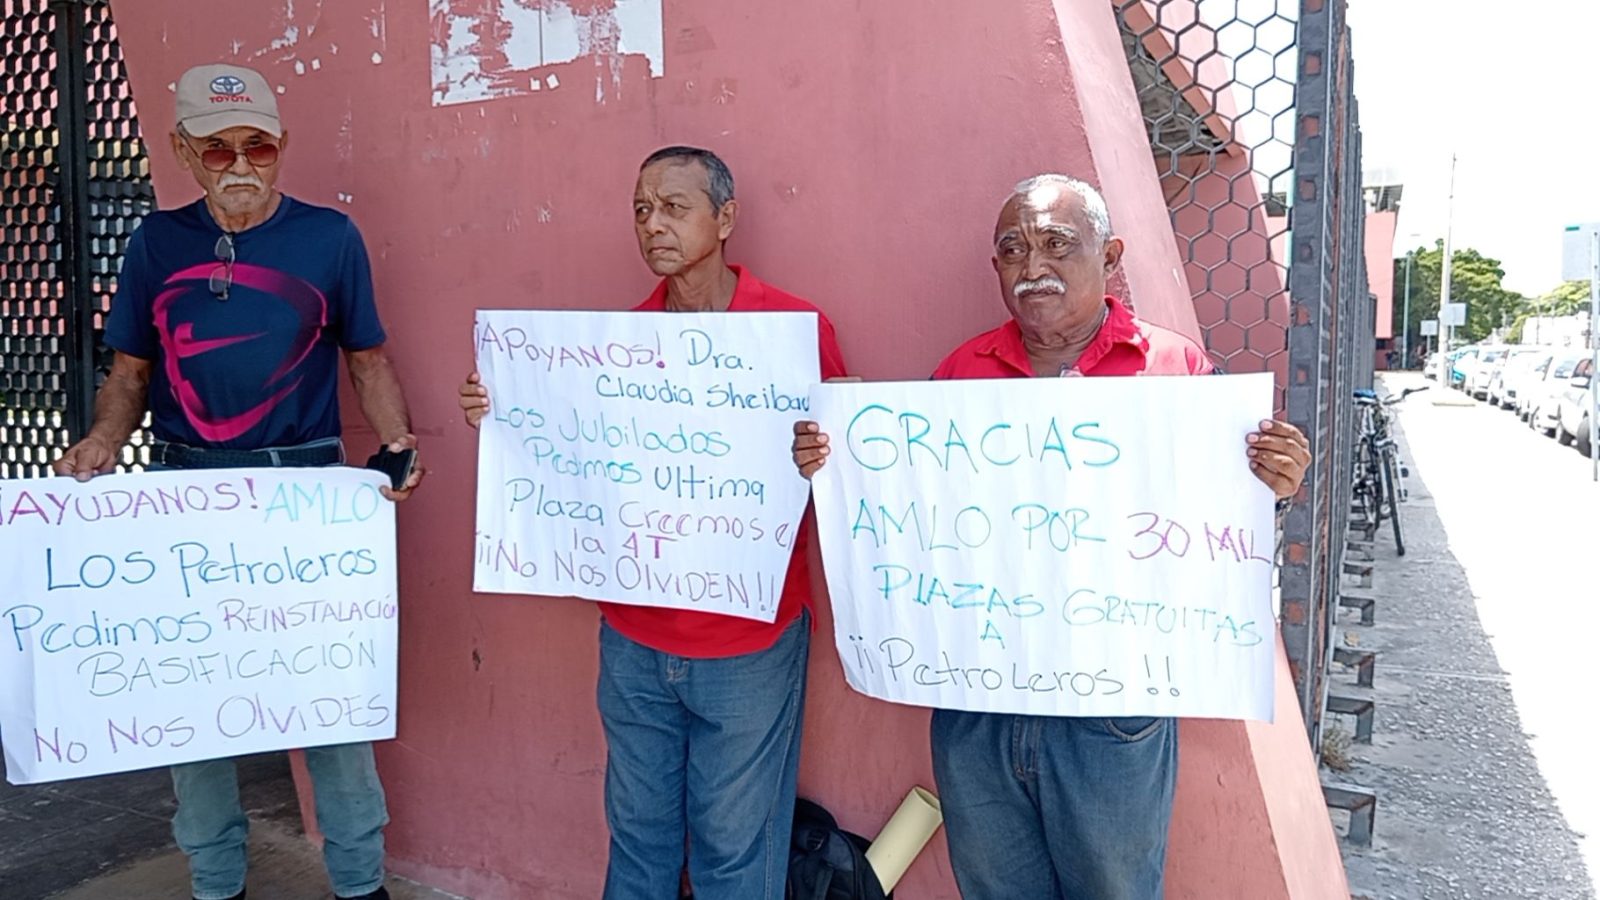 TOYOTA
¡AYUDANOS! AMLO
LOS PetroLeros
Pedimos REINSTALACIÓN
BASIFICACIÓN
No Nos OlviDES
¡APOYANOS! Dra.
Claudia Sheibau
Los Jubilados
Pedmos Ultima
Plaza Creemos en
la 4T
¡¡No Nos OlviDEN!!
GRACIAS
AMLO POR 30 MIL
PLAZAS GRATUITAS
A
¡¡PetroLeros!!